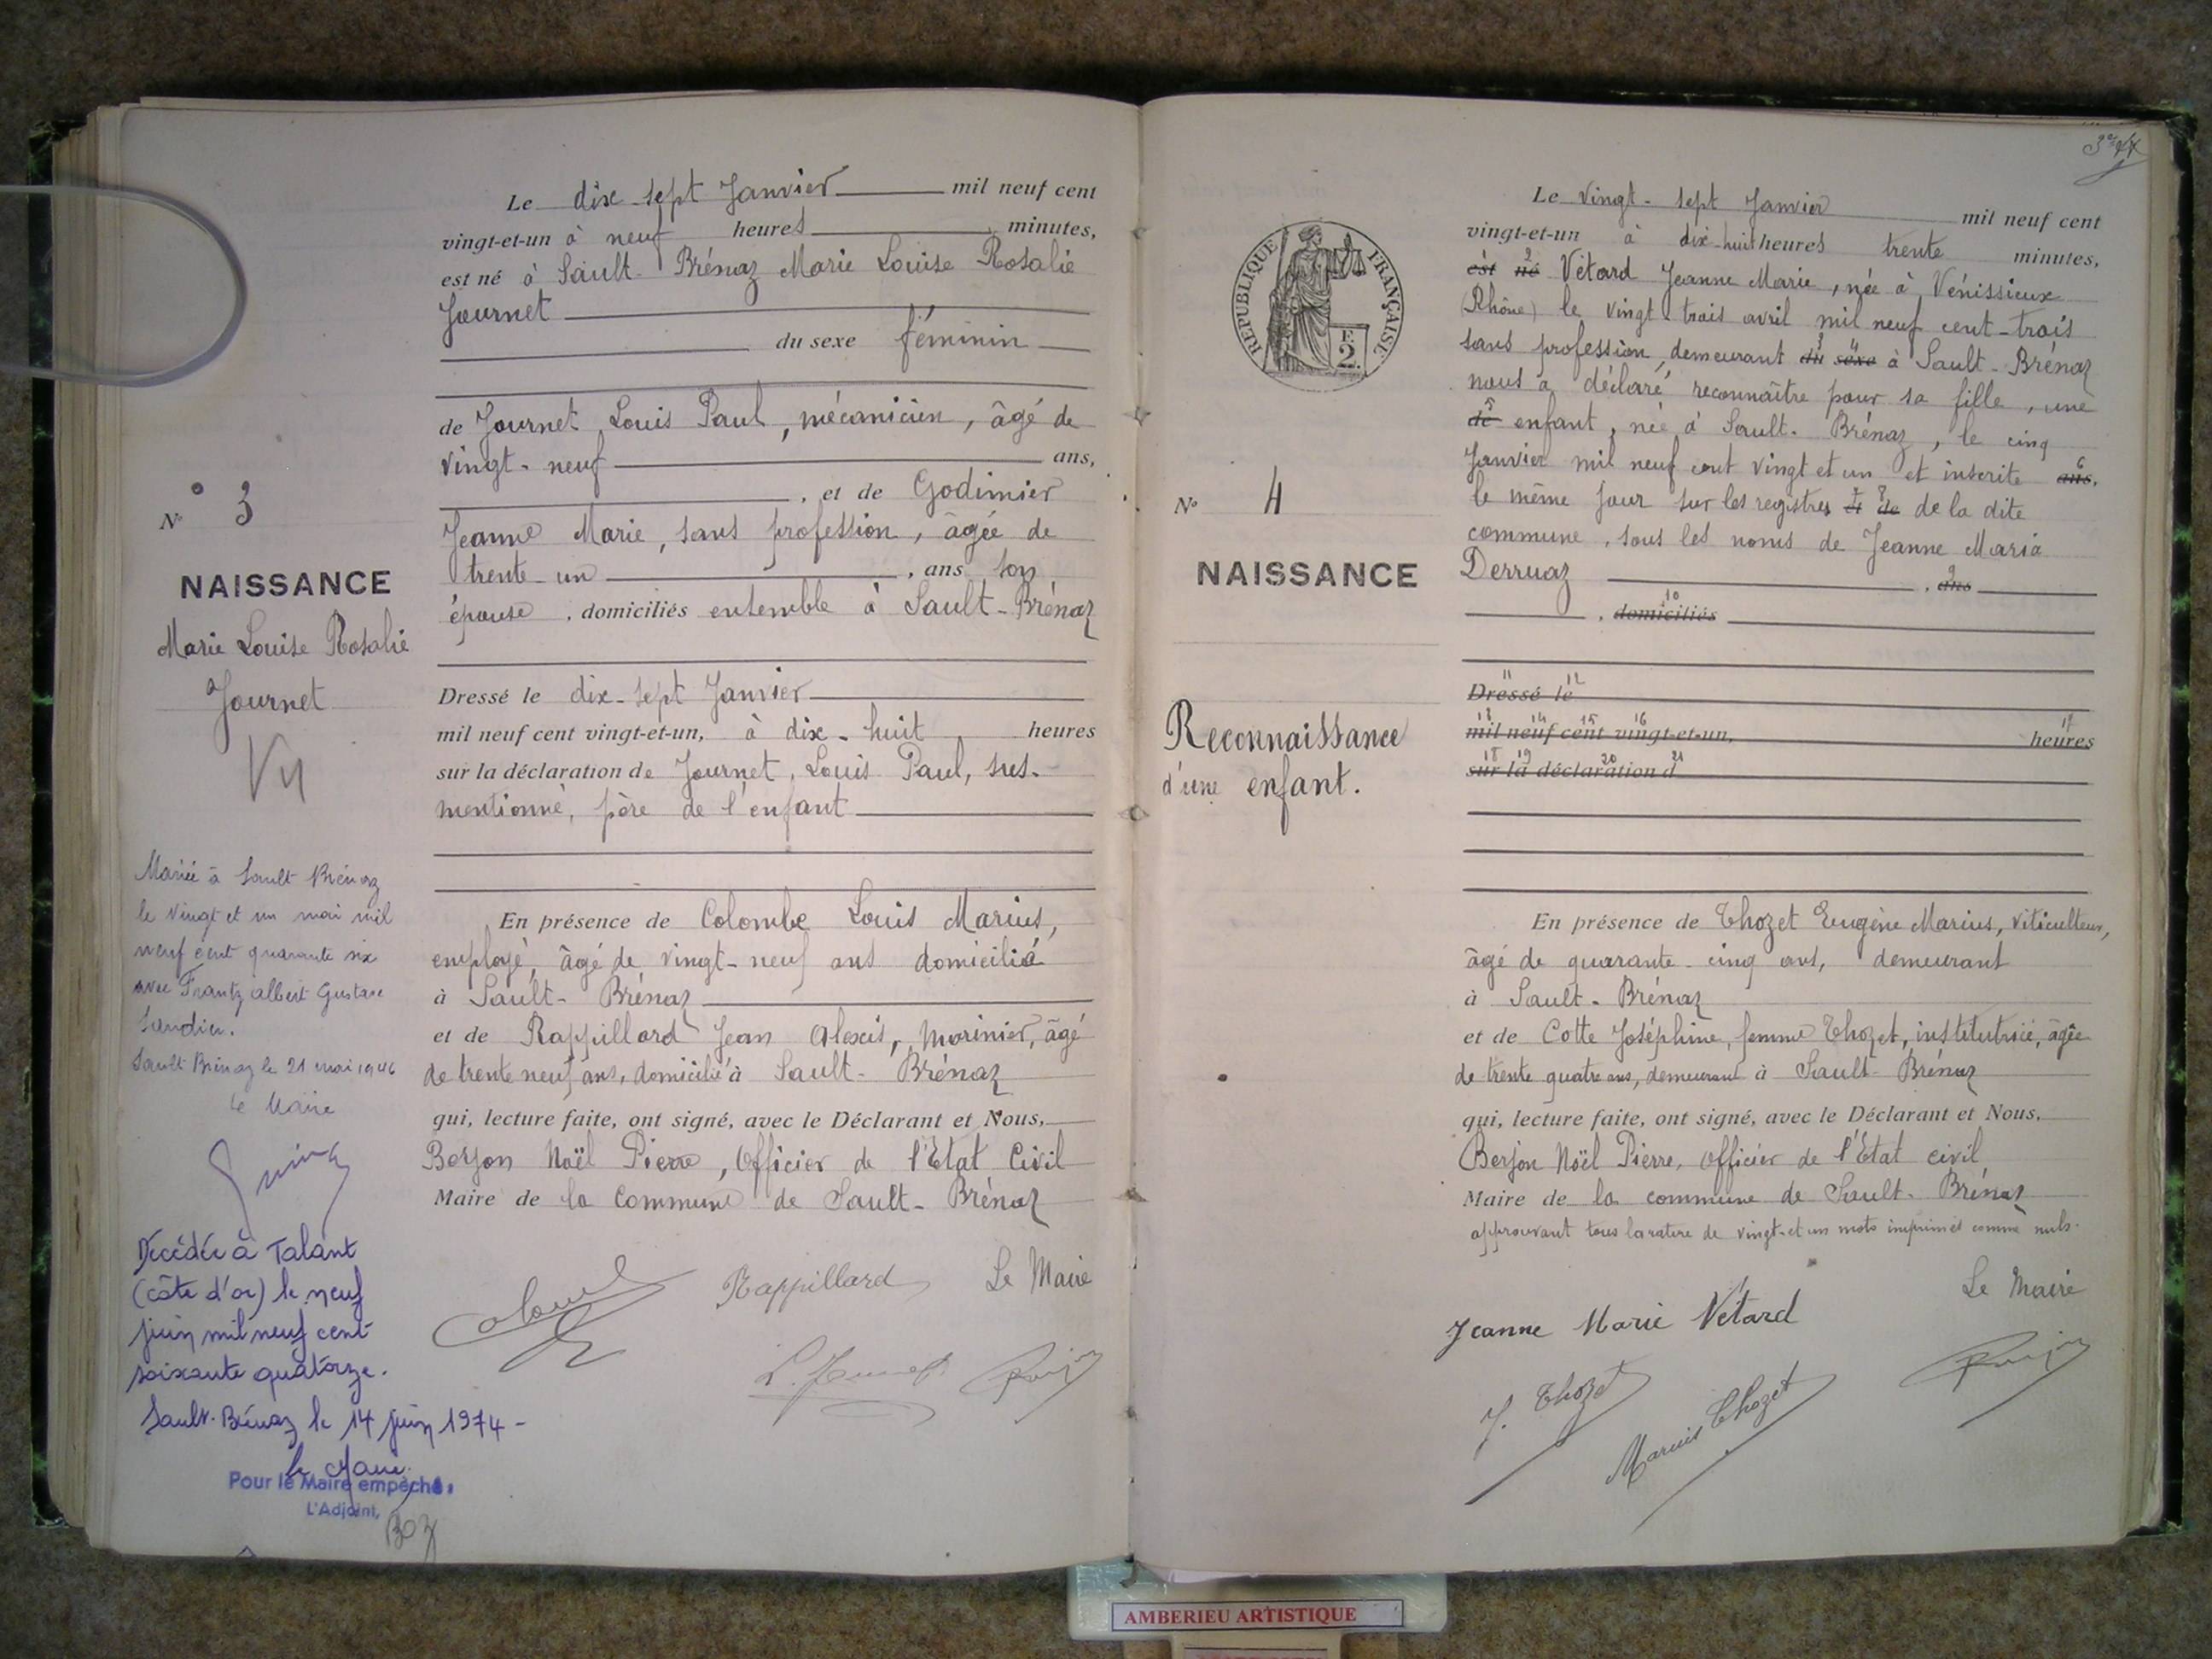 Le dix-sept Janvier mil neuf cent
vingt-et-un à neuf heures minutes,
est né à Sault-Brénaz Marie Louise Rosalie
Journet
du sexe féminin
de Journet, Louis Paul, mécanicien, âgé de
vingt-neuf ans,
, et de Godimier
Jeanne Marie, sans profession, âgée de
trente-un , ans son
épouse, domiciliés ensemble à Sault-Brénaz
Dressé le dix-sept Janvier
mil neuf cent vingt-et-un, à dix-huit heures
sur la déclaration de Journet, Louis Paul, sus-
mentionné, père de l'enfant
En présence de Colombe Louis Marius,
employé, âgé de vingt-neuf ans domicilié
à Sault-Brénaz
et de Rappillard Jean Alexis, marinier, âgé
de trente neuf ans, domicilié à Sault-Brénaz
qui, lecture faite, ont signé, avec le Déclarant et Nous,
Berjon Noël Pierre, Officier de l'Etat Civil
Maire de la Commune de Sault-Brénaz
Rappillard Le Maire
L. Journet
N° 3
NAISSANCE
Marie Louise Rosalie
Journet
Vu
Mariée à Sault Brénaz
le vingt et un mai mil
neuf cent quarante six
avec Frantz albert Gustave
Sault Brénaz le 21 mai 1946
le Maire
Décédée à Talant
(côte d'or) le neuf
juin mil neuf cent
soixante quatorze.
Sault-Brénaz le 14 juin 1974 -
le Maire
Pour le Maire empêché,
L'Adjoint,
REPUBLIQUE FRANÇAISE
F.
2.
N° 4
NAISSANCE
Reconnaissance
d'une enfant.
Le Vingt-sept Janvier mil neuf cent
vingt-et-un à dix-huit heures trente minutes,
est né Vétard Jeanne Marie, née à Vénissieux
(Rhône) le vingt trois avril mil neuf cent-trois
sans profession, demeurant du sexe à Sault-Brénaz
nous a déclaré reconnaître pour sa fille, une
de enfant, née à Sault-Brénaz, le cinq
Janvier mil neuf cent vingt et un et inscrite ans,
le même jour sur les registres et de de la dite
commune, sous les noms de Jeanne Maria
Derruaz , ans
, domiciliés
Dressé le
mil neuf cent vingt-et-un, heures
sur la déclaration d
En présence de Thozet Eugène Marius, viticulteur,
âgé de quarante-cinq ans, demeurant
à Sault-Brénaz
et de Cotte Joséphine, femme Thozet, institutrice, âgée
de trente quatre ans, demeurant à Sault-Brénaz
qui, lecture faite, ont signé, avec le Déclarant et Nous,
Berjon Noël Pierre, Officier de l'Etat civil
Maire de la commune de Sault-Brénaz
approuvant tous la rature de vingt-et un mots imprimés comme nuls.
Le Maire
Jeanne Marie Vétard
J. Thozet
Marius Thozet
AMBERIEU ARTISTIQUE